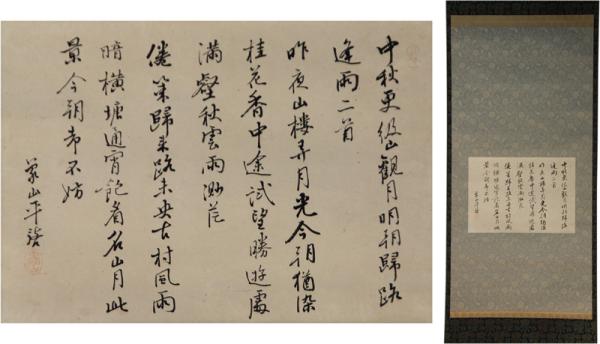 中秋更級山観月明朝歸路
逢雨二首
昨夜山樓弄月光今朝猶染
桂花香中途試望勝遊處
満壑秋雲雨渺茫
倦策歸来路未央古村風雨
暗横塘通宵飽看名山月此
景今朝却不妨
山平